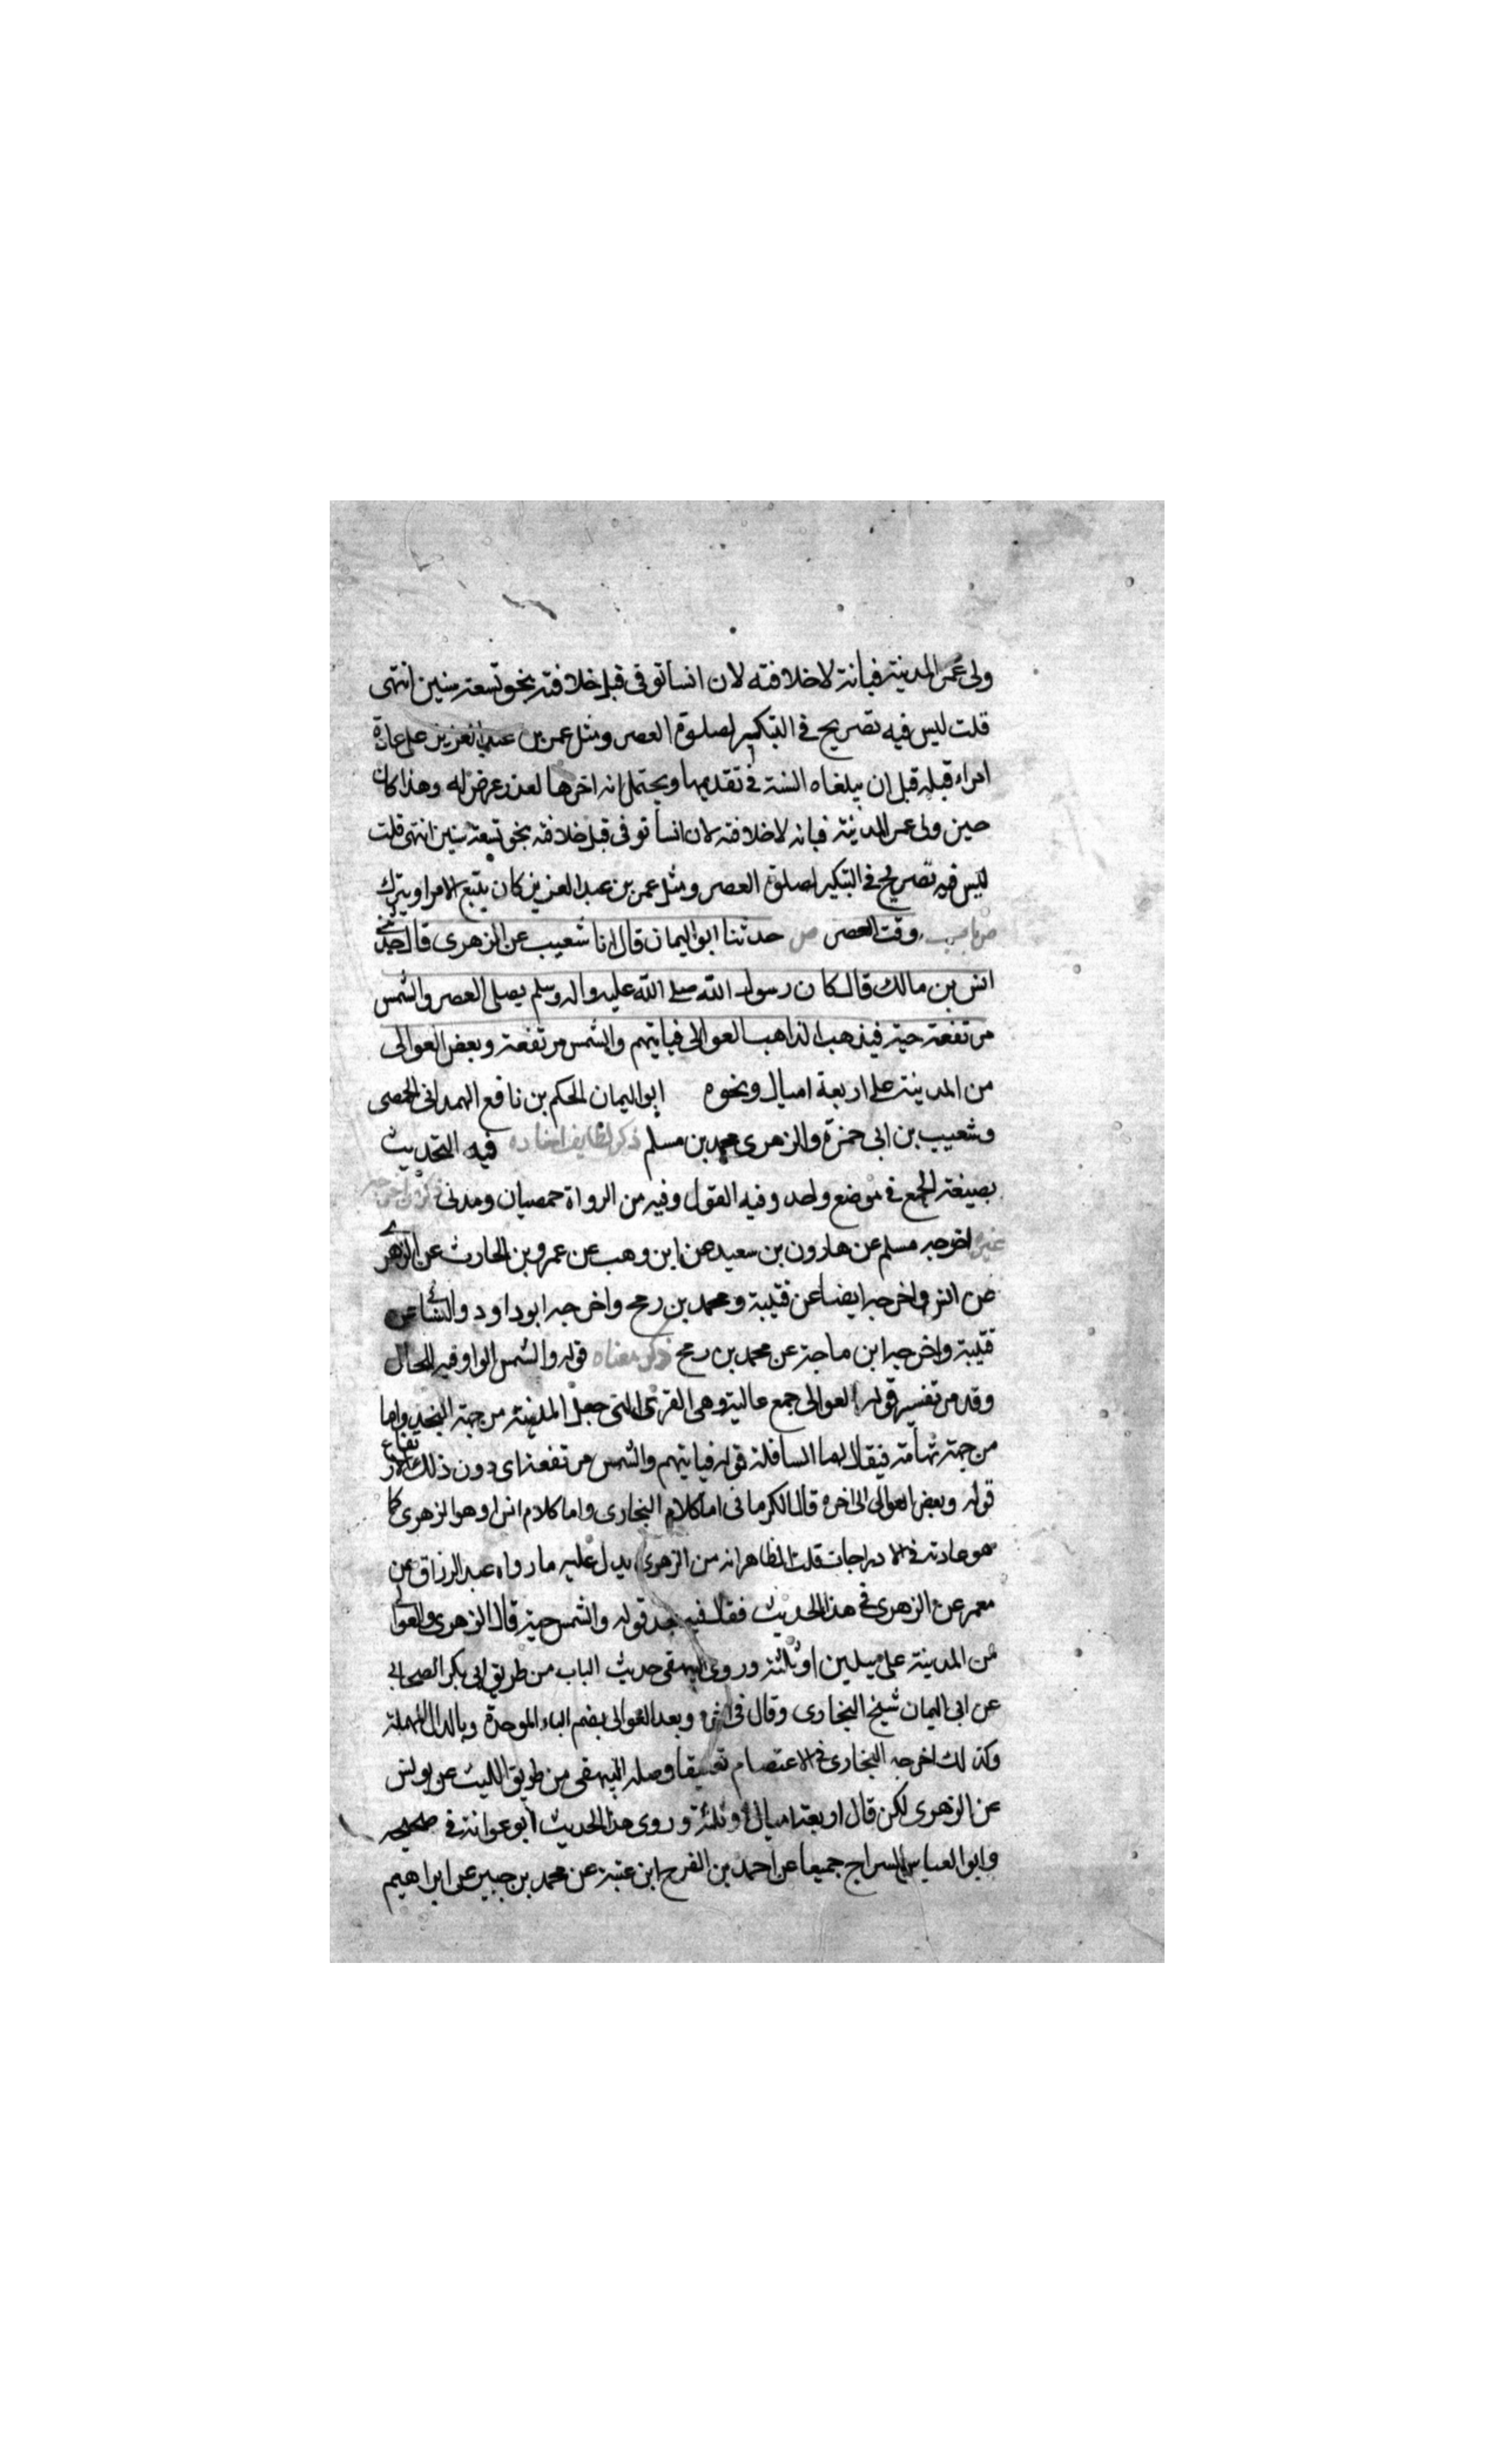 ولى عمر المدينة فيانة لا خلافته لان انسا توفى قبل خلافته بنحو تسعة سنين انتهى
قلت ليس فيه تصريح فى التبكير لصلوة العصر ومثل عمر بن عبد العزيز على عادة
امراء قبله قبل ان يبلغاه السنة فى تقديمها ويحتمل انه اخرها لعذر عرض له وهذا كان
حين ولى عمر المدينة فيانه لا خلافته لان انسا توفى قبل خلافته بنحو تسعة سنين انتهى قلت
ليس فيه تصريح فى التبكير لصلوة العصر ومثل عمر بن عبد العزيز كان يتبع الامرا ويترك
ص باب وقت العصر ص حدثنا ابو اليمان قال انا شعيب عن الزهرى قال حدثنى
انس بن مالك قال كان رسول الله صلى الله عليه واله وسلم يصلى العصر والشمس
مرتفعة حية فيذهب الذاهب العوالى فياتيهم والشمس مرتفعة وبعض العوالى
من المدينة على اربعة اميال ونحوه ابو اليمان الحكم بن نافع الهمدانى الحمصى
وشعيب بن ابى حمزة والزهرى محمد بن مسلم ذكر لطايف اسناده فيه التحديث
بصيغة الجمع فى موضع واحد وفيه القول وفيه من الرواة حمصيان ومدنى ذكر من اخرجه
غيره اخرجه مسلم عن هارون بن سعيد عن ابن وهب عن عمرو بن الحارث عن الزهرى
عن انس واخرجه ايضا عن قتيبة ومحمد بن رمح واخرجه ابو داود والنسائى عن
قتيبة واخرجه ابن ماجة عن محمد بن رمح ذكر معناه قوله والشمس الواو فيه للحال
وقد مر تفسير قوله العوالى جمع عالية وهى القرى التى حول المدينة من جهة النجد واما
من جهة تهامة فيقال لها السافلة قوله فياتيهم والشمس مرتفعة اى دون ذلك الارتفاع
قوله وبعض العوالى الى اخره قال الكرمانى اما كلام البخارى واما كلام انس او هو الزهرى كما
هو عادته فى الادراجات قلت الظاهر انه من الزهرى يدل عليه ما رواه عبد الرزاق عن
معمر عن الزهرى فى هذا الحديث فقال فيه بعد قوله والشمس حية قال الزهرى والعوالى
من المدينة على ميلين او ثلثة وروى البيهقى حديث الباب من طريق ابى بكر الصحابى
عن ابى اليمان شيخ البخارى وقال فى اخره وبعد العوالى بضم الباء الموحدة وبالدال المهملة
وكذلك اخرجه البخارى فى الاعتصام تعليقا وصله البيهقى من طريق الليث عن يونس
عن الزهرى لكن قال اربعة اميال او ثلثة وروى هذا الحديث ابو عوانة فى صحيحه
وابو العباس السراج جميعا عن احمد بن الفرح ابن عتبة عن محمد بن جبير عن ابراهيم